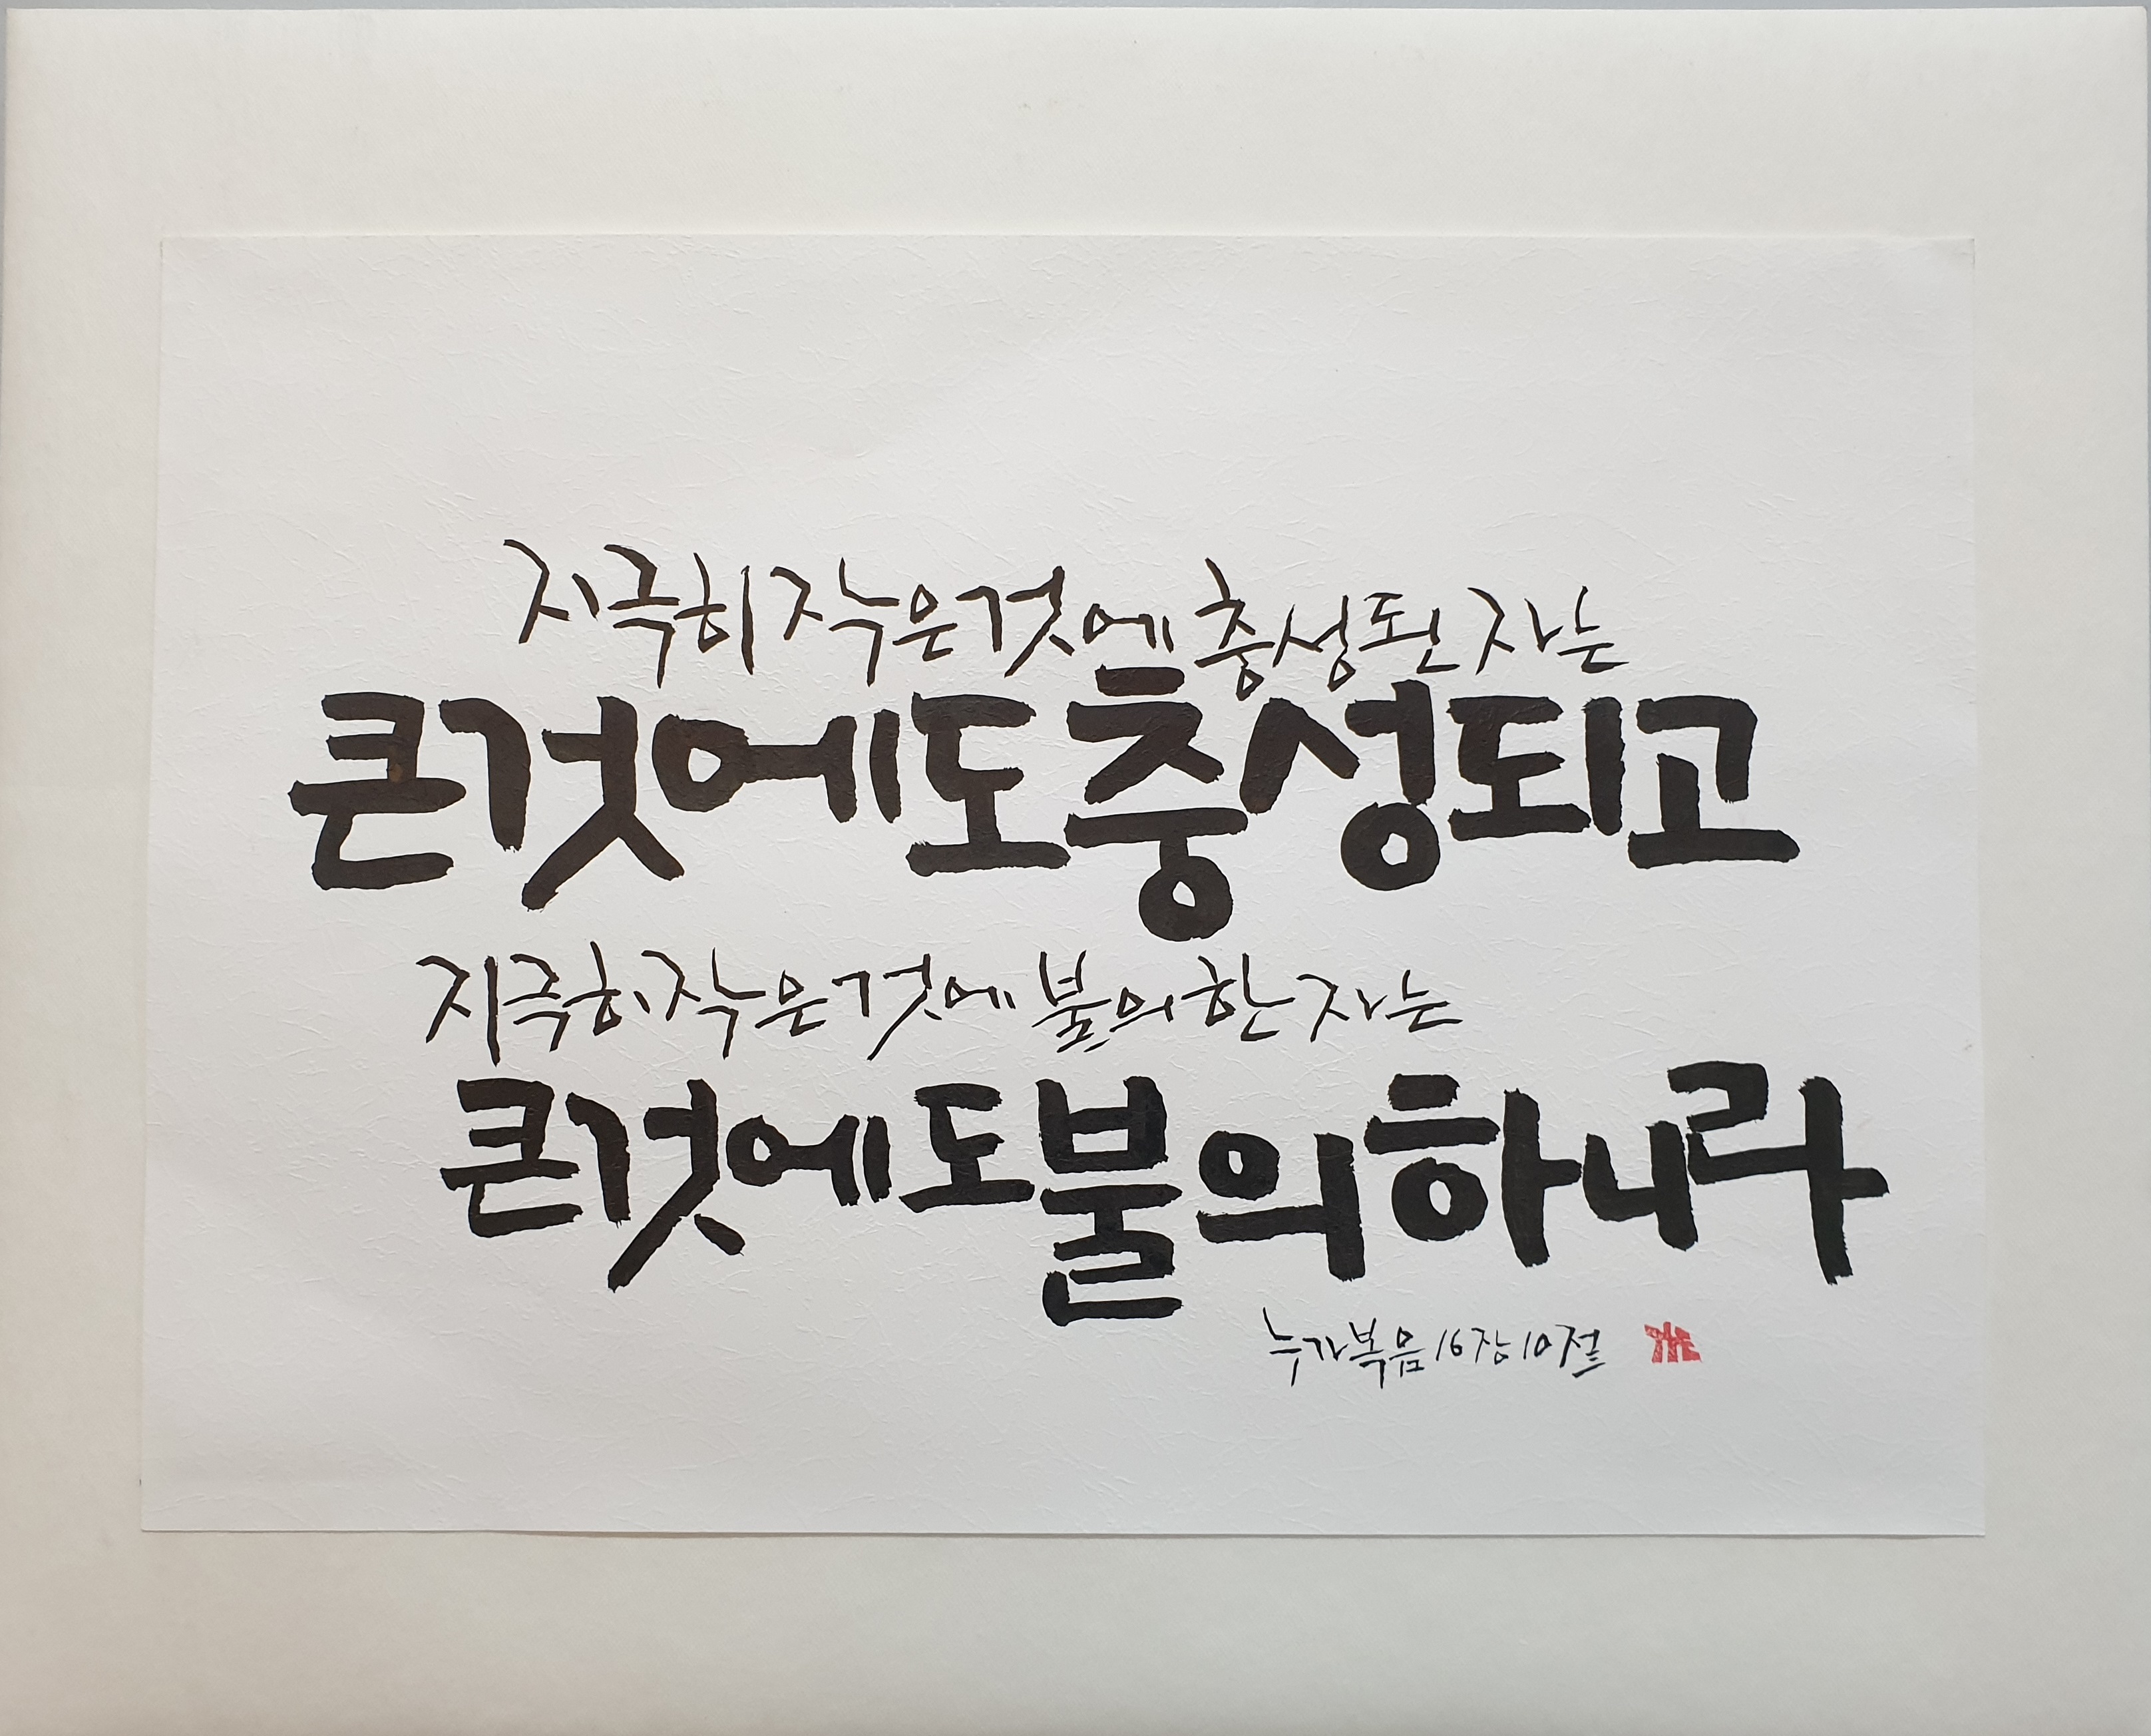 지극히 작은것에 충성된 자는
큰것에도충성되고
지극히작은것에 불의한 자는
큰것에도불의하니라
누가복음 16장 10절